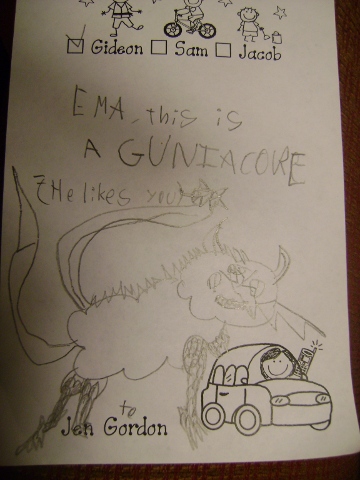 Gideon Sam Jacob
EMA, this is
A GUNIACORE
(He likes you)
to
Jen Gordon